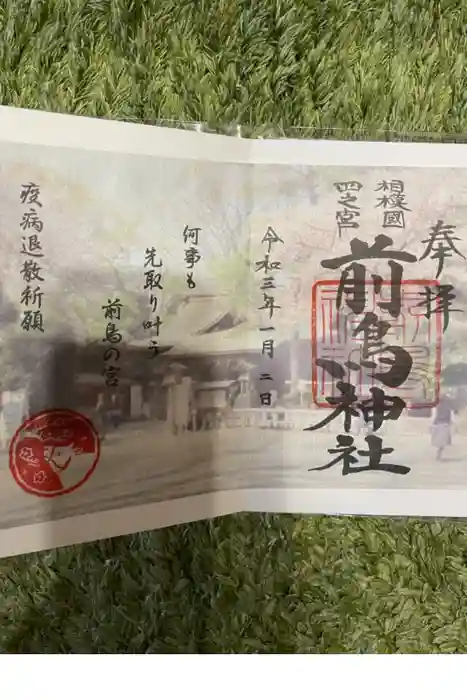 奉拝
相模國
四之宮
前鳥神社
令和三年一月二日
何事も
先取り叶う
前鳥の宮
疫病退散祈願